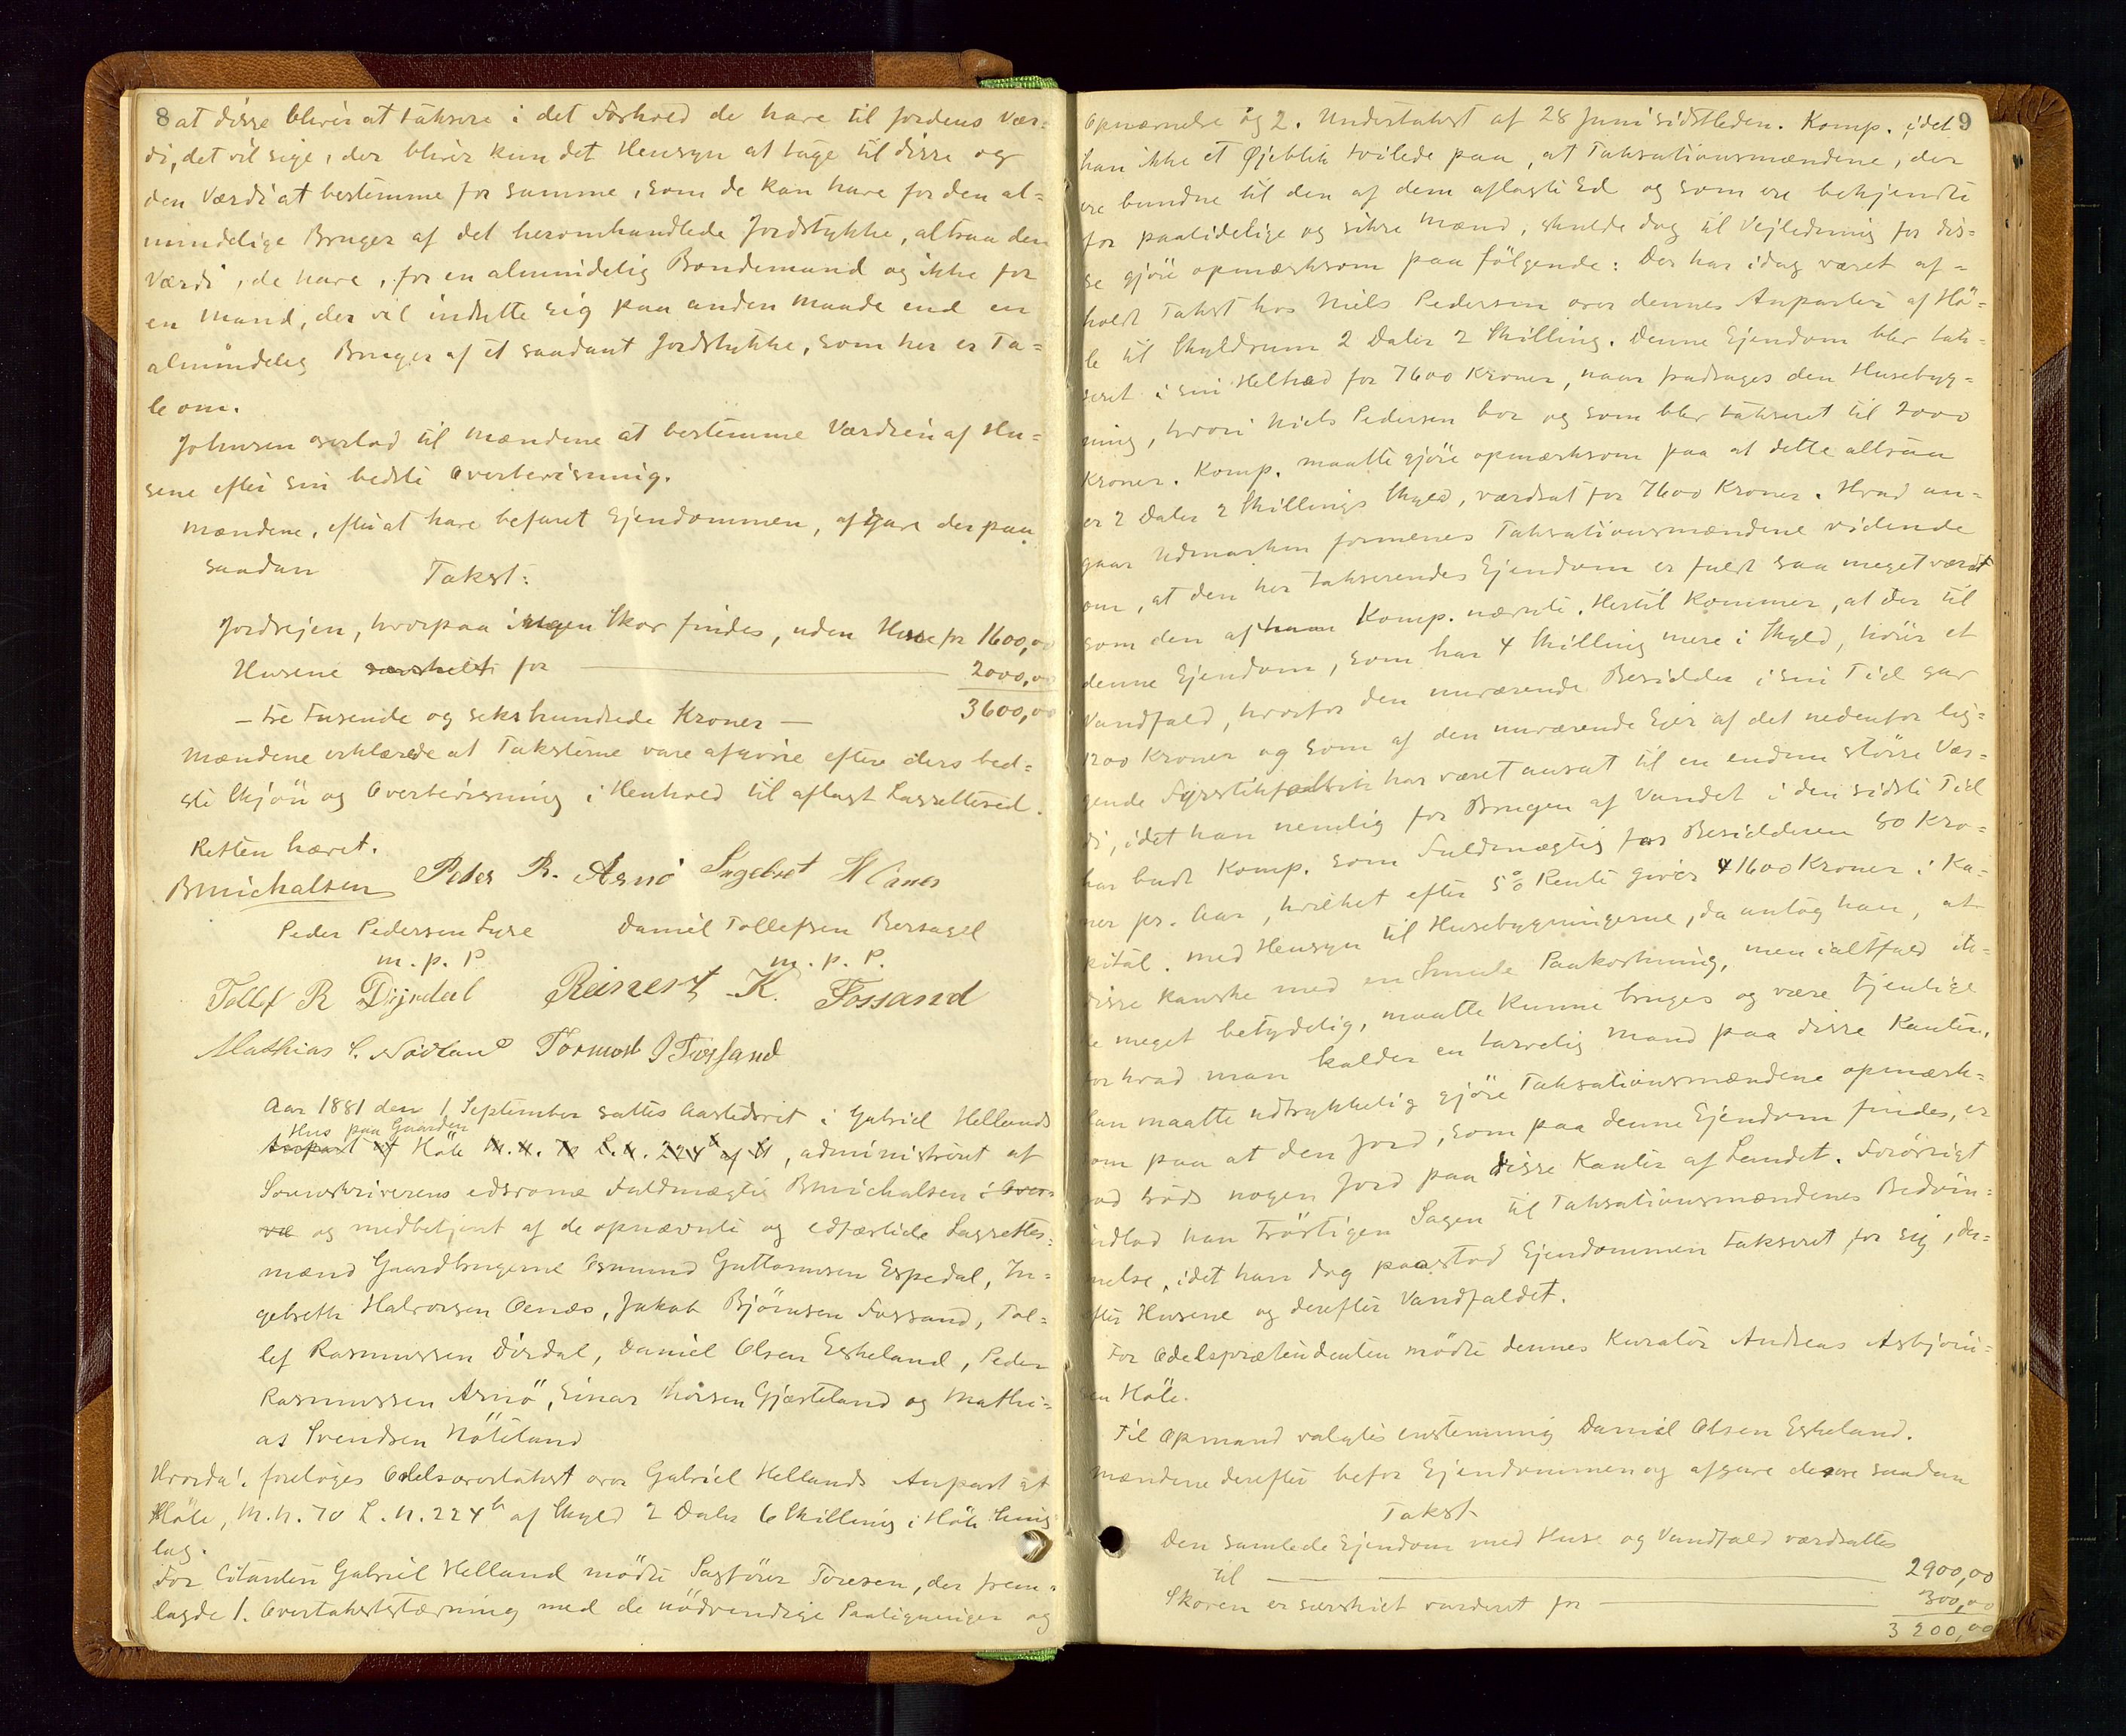 8 at disse bliver at taksere i det Forhold de have til Jordens Vær-
di, det vil sige, der bliver kun det Hensyn at tage til disse og
den Værdi at bestemme for samme, som de kan have for den al-
mindelige Bruger af det heromhandlede Jordstykke, altsaa den
Værdi, de have, for en almindelig Bondemand og ikke for
en Mand, der vil indrette sig paa anden Maade end en
almindelig Bruger af et saadant Jordstykke, som her er Ta-
le om.
Johnsen overlod til Mændene at bestemme Værdien af Hu-
sene efter sin bedste Overbevisning.
Mændene, efterat have befaret Ejendommen, afgave derpaa
saadan Takst:
Jordvejen, hvorpaa ingen Skov findes, uden Huse for 1600,00
Husene særskilt for 2000,00
— tre tusende og sekshundrede Kroner — 3600,00
Mændene erklærede at Taksterne vare afgivne efter deres bed-
ste Skjøn og Overbevisning i Henhold til aflagt Lagrettesed.
Retten hævet.
BMichalsen Peder R. Arnö Ingebret H Oanes
Peder Pedersen Lyse Daniel Tollefsen Bersagel
m. p. P. m. p. P.
Tollef R Dirdal Reinert K. Fossand
Mathias S. Nödland Tormod J Fossand
Aar 1881 den 1 September sattes Aastedsret i Gabriel Hellands
Hus paa Gaarden
Anpart af Höle M.N. 70 L.N. 224b af H, administreret af
Sorenskriverens edsvorne Fuldmægtig BMichalsen i Over-
væ og medbetjent af de opnævnte og edfæstede Lagrettes-
mænd Gaardbrugerne Osmund Guttormsen Espedal, In-
gebreth Halvorsen Oanæs, Jakob Bjørnsen Fossand, Tol-
lef Rasmussen Dirdal, Daniel Olsen Eskeland, Peder
Rasmussen Arnö, Einar Thorsen Gjesteland og Mathi-
as Svendsen Nöteland
Hvorda! foretoges Odelsovertakst over Gabriel Hellands Anpart af
Höle, M.N. 70 L.N. 224b af Skyld 2 Daler 6 Skilling i Höle Thing
lag.
For Citanten Gabriel Helland mödte Sagförer Toresen, der frem-
lagde 1. Overtakststævning med de nödvendige Paategninger og
9
Opnævnelse og 2. Undertakst af 28 Juni sidstleden. Komp. idet
han ikke et Øjeblik tvilede paa, at Taksationsmændene, der
ere bundne til den af dem aflagte Ed og som ere bekjendte
for paalidelige og sikre Mænd, skulde dog til Vejledning for dis-
se gjöre opmærksom paa fölgende: Der har idag været af-
holdt Takst hos Niels Pedersen over dennes Anparter af Hö-
le til Skyldsum 2 Daler 2 Skilling. Denne Ejendom blev tak-
seret i sin Helhed for 7600 Kroner, naar fradrages den Husebyg-
ning, hvori Niels Pedersen bor og som blev takseret til 2000
Kroner. Komp. maatte gjöre opmærksom paa at dette altsaa
er 2 Daler 2 Skillings Skyld, værdsat for 7600 Kroner. Hvad an-
gaar Udmarken formenes Taksationsmændene vidende
om, at den her takserendes Ejendom er fuldt saa meget værdt
som den af ham Komp. nævnte. Hertil kommer, at der til
denne Ejendom, som har 4 Skilling mere i Skyld, hörer et
Vandfald, hvorfor den nuværende Besidder i sin Tid gav
1200 Kroner og som af den nuværende Ejer af det nedenfor lig-
gende Fyrstikfabrik har været ansat til en endnu större Vær-
di, idet han nemlig for Brugen af Vandet i den sidste Tid
har budt Komp. som Fuldmægtig for Besidderen 80 Kro-
ner pr. Aar, hvilket efter 5% Rente giver 1600 Kroner i Ka-
pital. Med Hensyn til Husebygningerne, da antog han, at
disse kanske med en Smule Paakostning, men ialtfald ik-
ke meget betydelig, maatte kunne bruges og være tjenlige
for hvad man kalder en tarvelig Mand paa disse Kanter.
Han maatte udtrykkelig gjöre Taksationsmændene opmærk-
som paa at den Jord, som paa denne Ejendom findes, er
god trods nogen Jord paa disse Kanter af Landet. Forövrigt
indlod han tröstigen Sagen til Taksationsmændenes Bedöm-
melse, idet han dog paastod Ejendommen takseret for sig, der-
efter Husene og derefter Vandfaldet.
For Odelsprætendenten mödte dennes Kurator Andreas Asbjörn-
sen Höle.
Til Opmand valgtes enstemmig Daniel Olsen Eskeland.
Mændene derefter befor Ejendommen og afgave derover saadan
Takst
Den samlede Ejendom med Huse og Vandfald værdsattes
til 2900,00
Skoven er særskilt vurderet for 300,00
3200,00